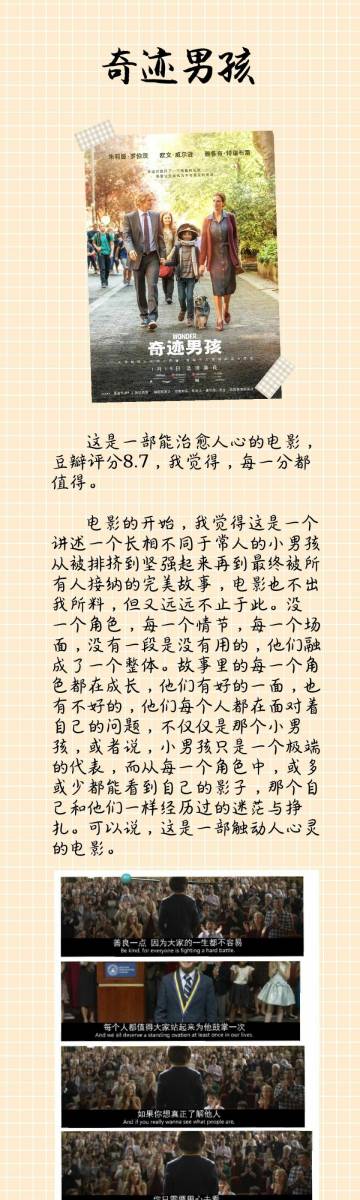 奇迹男孩
朱莉娅·罗伯茨 欧文·威尔逊 雅各布·特瑞布雷
WONDER
奇迹男孩
这是一部能治愈人心的电影，
豆瓣评分8.7，我觉得，每一分都
值得。
电影的开始，我觉得这是一个
讲述一个长相不同于常人的小男孩
从被排挤到坚强起来再到最终被所
有人接纳的完美故事，电影也不出
我所料，但又远远不止于此。没
一个角色，每一个情节，每一个场
面，没有一段是没有用的，他们融
成了一个整体。故事里的每一个角
色都在成长，他们有好的一面，也
有不好的，他们每个人都在面对着
自己的问题，不仅仅是那个小男
孩，或者说，小男孩只是一个极端
的代表，而从每一个角色中，或多
或少都能看到自己的影子，那个自
己和他们一样经历过的迷茫与挣
扎。可以说，这是一部触动人心灵
的电影。
善良一点 因为大家的一生都不容易
Be kind, for everyone is fighting a hard battle.
每个人都值得大家站起来为他鼓掌一次
And we all deserve a standing ovation at least once in our lives.
如果你想真正了解他人
And if you really wanna see what people are,
你只需要用心去看